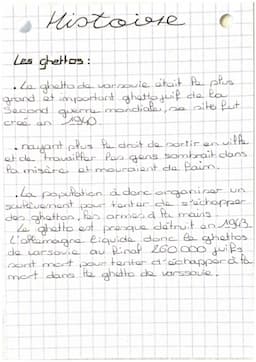 Histoire
Les ghettos :
• Le ghetto de varsovie était le plus
grand et important ghetto juif de la
Second guerre mondiale, se fut
crée en 1940.
• nayant plus le droit de sortir en ville
et de travailler les gens sombrait dans
la misère et mouraient de faim.
• La population à donc organiser un
soulèvement pour tenter de s'échapper
des ghettos, les armes à la main.
Le ghetto est presque détruit en 1943
L'allemagne liquide donc le ghettos
de varsovie au final 260.000 juifs
sont mort pour tenter d'échapper à la
mort dans le ghetto de varsovie.